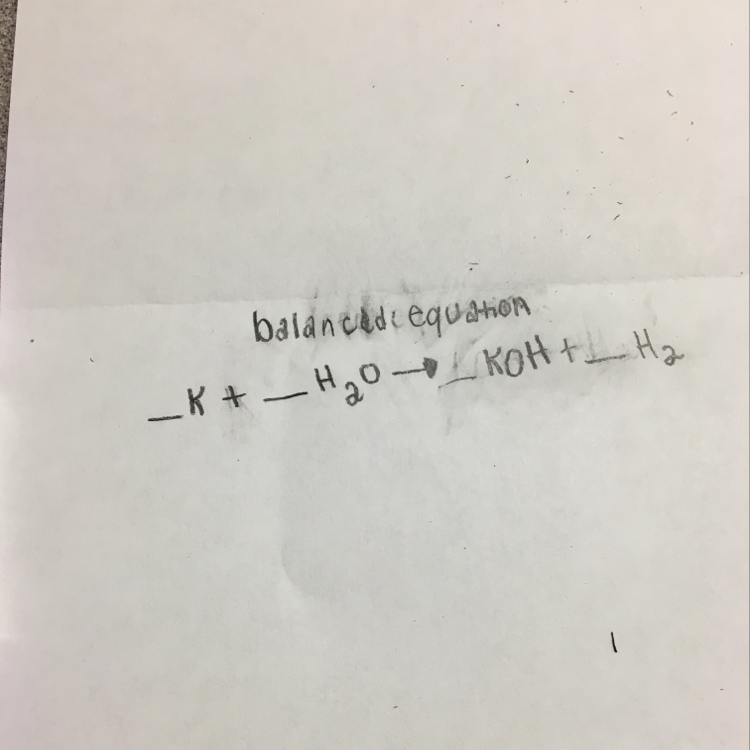 balanced equation
_K + _ H₂O → _ KOH + _ H₂
1